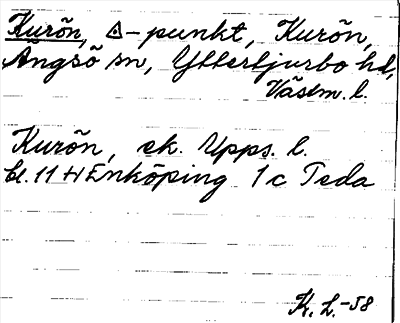 Kurön, △-punkt, Kurön,
Ängsö sn, Ytterjurbo hd,
Västm. l.
Kurön, ek. Upps. l.
bl. 11 H Enköping 1c Teda
K. L. -58